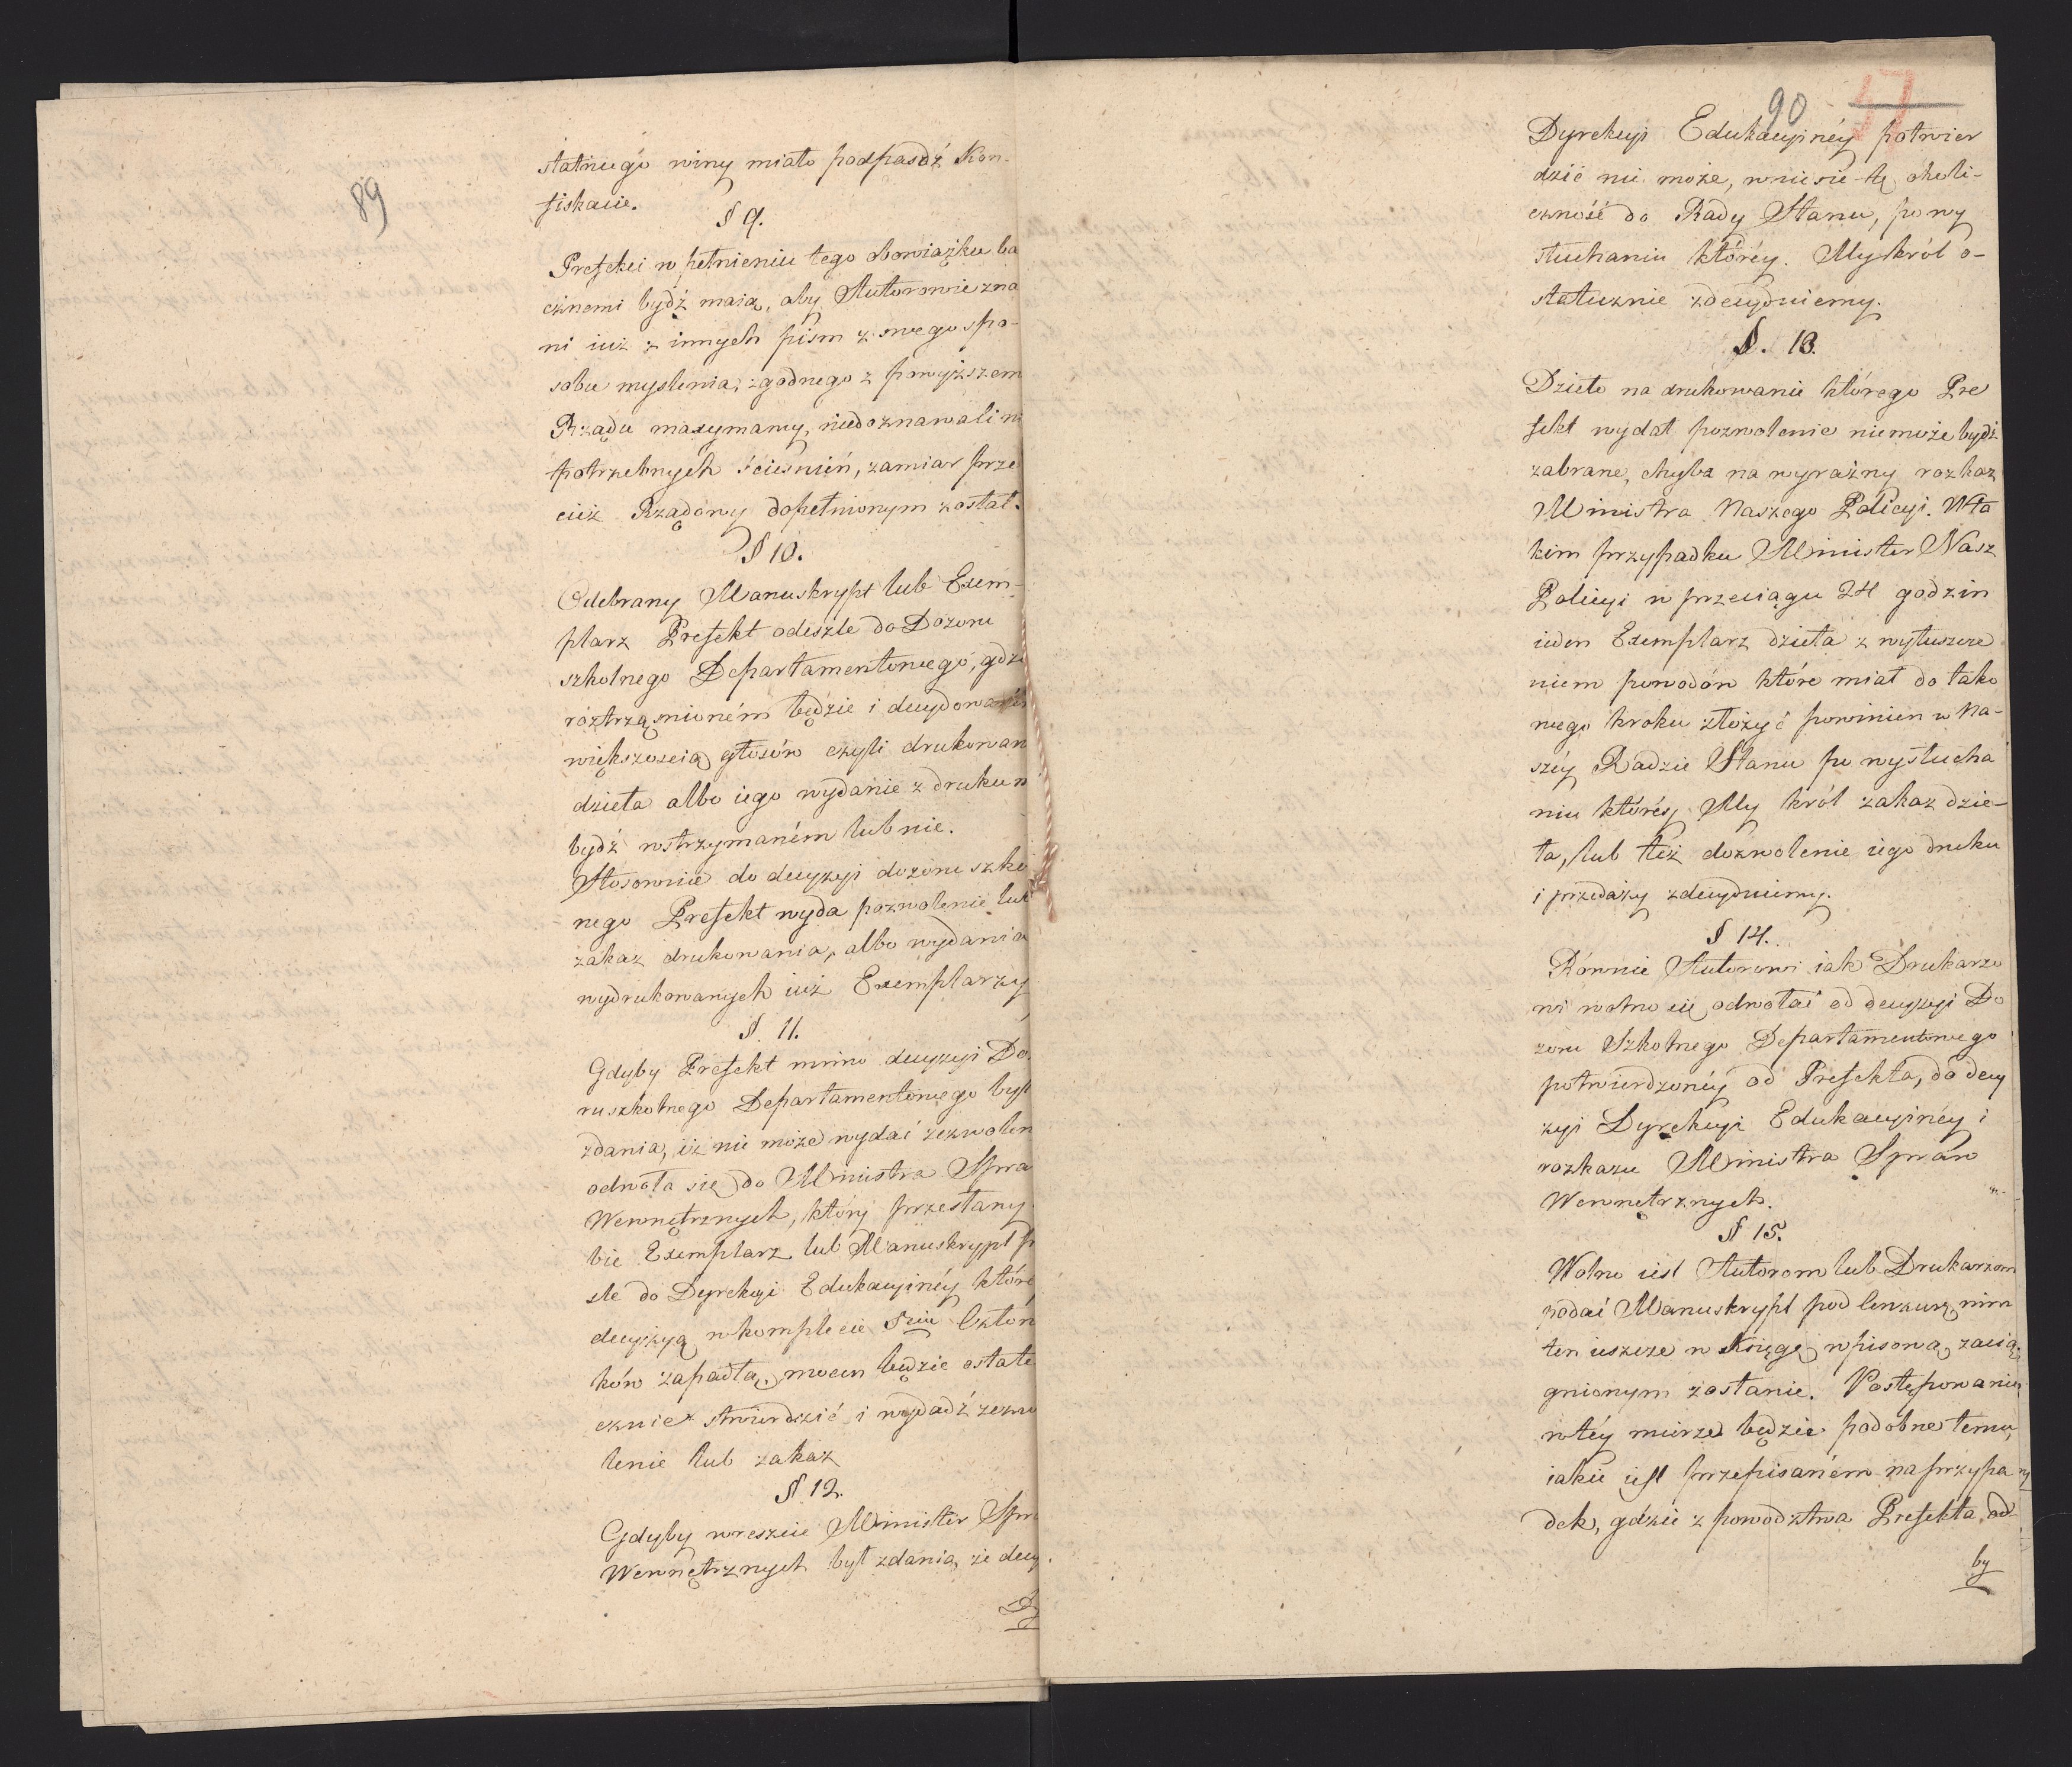 89
statniego winy miało podpaśdź Kon-
fiskacie.
§ 9.
Prefekci w pełnieniu tego obowiązku ba
cznemi bydź maią, aby Autorowie zna
ni iuż z innych pism z swego spo-
sobu myslenia, zgodnego z powyższem
Rządu maxymamy, niedoznawali ni
potrzebnych ścieśnień, zamiar prze
cież Rządowy dopełnionym został.
§ 10.
Odebrany Manuskrypt lub Exem-
plarz Prefekt odeszle do Dozoru
szkolnego Departamentowego, gdzi
roztrząśnioném będzie i decydowaném
większoscią głosów czyli drukowan
dzieła albo iego wydanie z druku m
bydź wstrzymaném lub nie.
Stosownie do decyzyi dozoru szko
nego Prefekt wyda pozwolenie lub
zakaz drukowania, albo wydania
wydrukowanych iuż Exemplarzy
§. 11.
Gdyby Prefekt mimo decyzyi Do-
ru szkolnego Departamentowego był
zdania, iż nie może wydać zezwolen
odwoła się do Ministra Spra
Wewnętrznych, który przesłany
bie Exemplarz lub Manuskrypt p
sle do Dyrekcyi Edukacyinéy któré
decyzyą w komplecie 5ciu Człon
ków zapadłą, mocen będzie ostate
cznie stwierdzić i wydadź zezwo
lenie lub zakaz
§ 12.
Gdyby wreszcie Minister Spra
Wewnętrznych był zdania, że decy
Dy
90 47
Dyrekcyi Edukacyinéy potwier
dzić nie może, wniesie tę okoli-
czność do Rady Stanu, po wy
słuchaniu któréy. My król o-
statecznie zdecyduiemy.
§. 13.
Dzieło na drukowanie którego Pre
fekt wydał pozwolenie niemoże bydź
zabrane, chyba na wyraźny rozkaz
Ministra Naszego Policyi. W ta
kim przypadku Minister Nasz
Policyi w przeciągu 24 godzin
ieden Exemplarz dzieła z wyłuszcze
niem powodów które miał do tako
wego kroku złożyć powinien w Na-
széy Radzie Stanu po wysłucha
niu któréy My król zakaz dzie-
ła, lub też dozwolenie iego druku
i przedaży zdecyduiemy.
§ 14.
Równie Autorowi iak Drukarzo
wi wolno się odwołać od decyzyi Do
zoru Szkolnego Departamentowego
potwierdzonéy od Prefekta, do decy
zyi Dyrekcyi Edukacyinéy i
rozkazu Ministra Spraw
Wewnętrznych.
§ 15.
Wolno iest Autorom lub Drukarzom
podać Manuskrypt pod cenzurę, nim
ten ieszcze w Księgę wpisową zacią
gnionym zostanie. Postępowanie
w téy mierze będzie podobne temu,
iakie iest przepisaném na przypa
dek, gdzie z powodztwa Prefekta od-
by